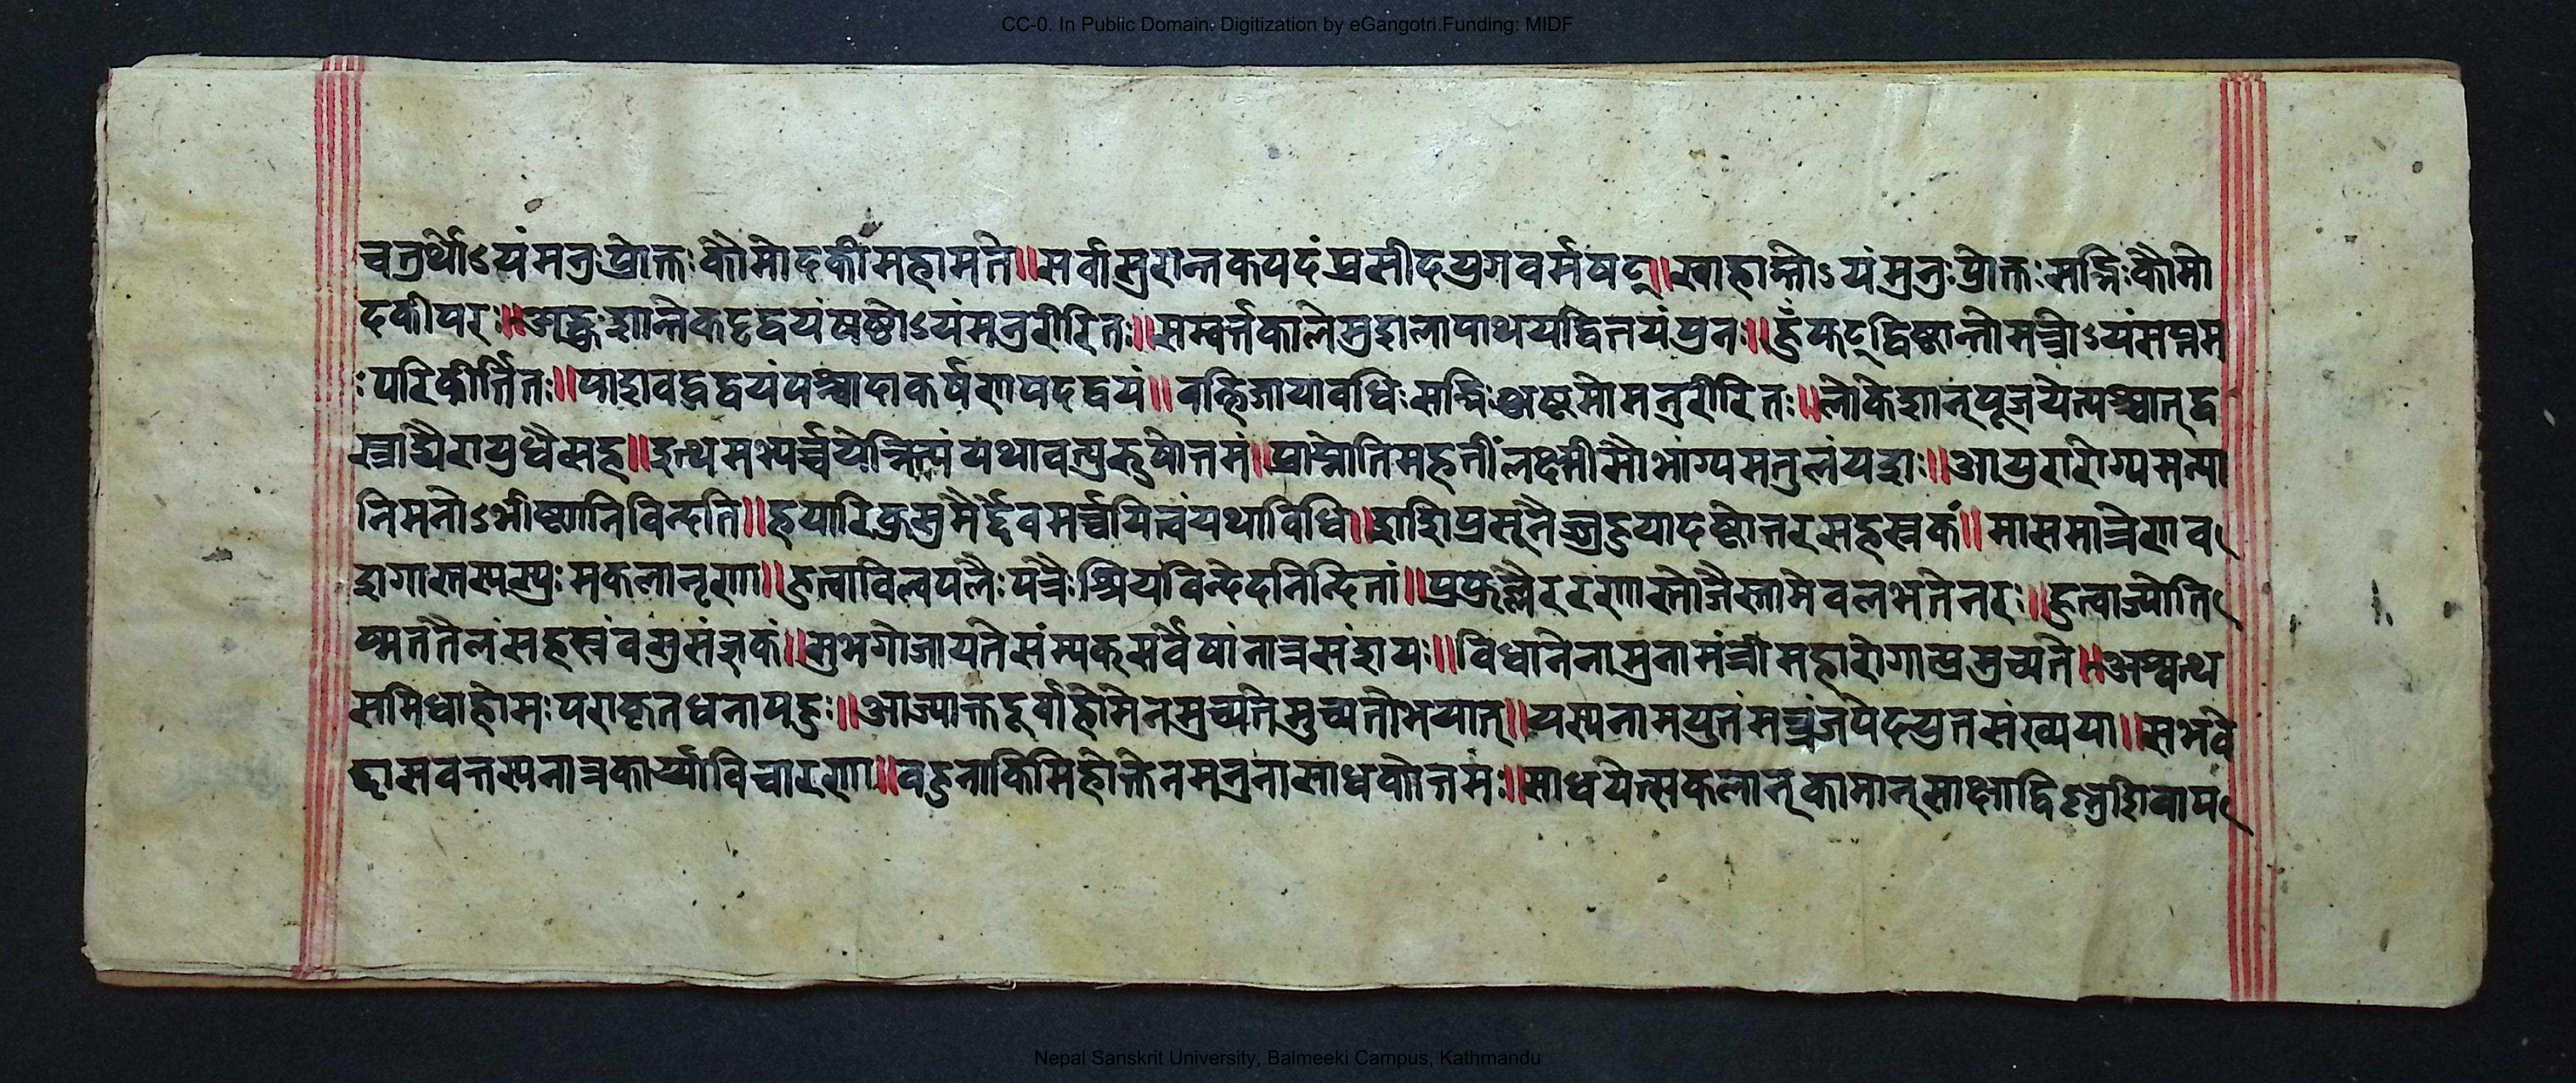 CC-0. In Public Domain. Digitization by eGangotri.Funding: MIDF
चतुर्थोऽयंमनुःप्रोक्तःकौमोदकीमहामते॥सर्वासुरान्तकपदंप्रसीदयुगवर्मषट्॥स्वाहान्तोऽयंमनुःप्रोक्तःसद्भिःकौमो
दकीपरः॥अङ्कुशान्तेकट्टद्वयंषष्ठोऽयंमनुरीरितः॥सम्वर्त्तकालेमुशलापोथयद्वितयंपुनः॥हुँफट्द्विष्ठान्तोमन्त्रोऽयंसप्तम
ःपरिकीर्त्तितः॥पाशवद्धद्वयंपश्चादाकर्षणपदद्वयं॥वह्निजायावधिःसद्भिःअष्टमोमनुरीरितः॥लोकेशान्पूजयेत्पश्चात्द्व
ज्राद्यैरायुधैसह॥इत्थमभ्यर्च्चयेन्नित्यंयथावत्पुरुषोत्तमं॥प्राप्नोतिमहतींलक्ष्मीसौभाग्यमतुलंयशः॥आयुरारोग्यमन्या
निमनोऽभीष्टानिविन्दति॥हयारिकुसुमैर्द्देवमर्च्चयित्वंयथाविधि॥शशिप्रसूनैजुहुयादष्टोत्तरसहस्रकं॥मासमात्रेणव
शगास्तस्यस्युःसकलानृणा॥हुत्वाविल्वफलैःपत्रैःश्रियंविन्देदनिन्दितां॥प्रफुल्लैररणाम्भोजैस्तामेवलभतेनरः॥हुत्वाज्योति
ष्मतितैलंसहस्रंवसुसंज्ञकं॥सुभगोजायतेसंम्यक्सर्वेषांनात्रसंशयः॥विधानेनामुनामंत्रीमहारोगात्प्रमुच्यते॥अश्वत्थ
समिधाहोमःपराकृतधनापदुः॥आज्याक्तदूर्वाहोमेनमुच्यतेमुच्यतोभयात्॥यस्यनामयुतंमन्त्रंजपेदयुतसंख्यया॥सभवे
द्दासवत्तस्यनात्रकार्य्याविचारणा॥वहुनाकिमिहोक्तेनमनुनासाधकोत्तमः॥साधयेत्सकलान्कामान्साक्षाद्विष्णुशिवाप
Nepal Sanskrit University, Balmeeki Campus, Kathmandu